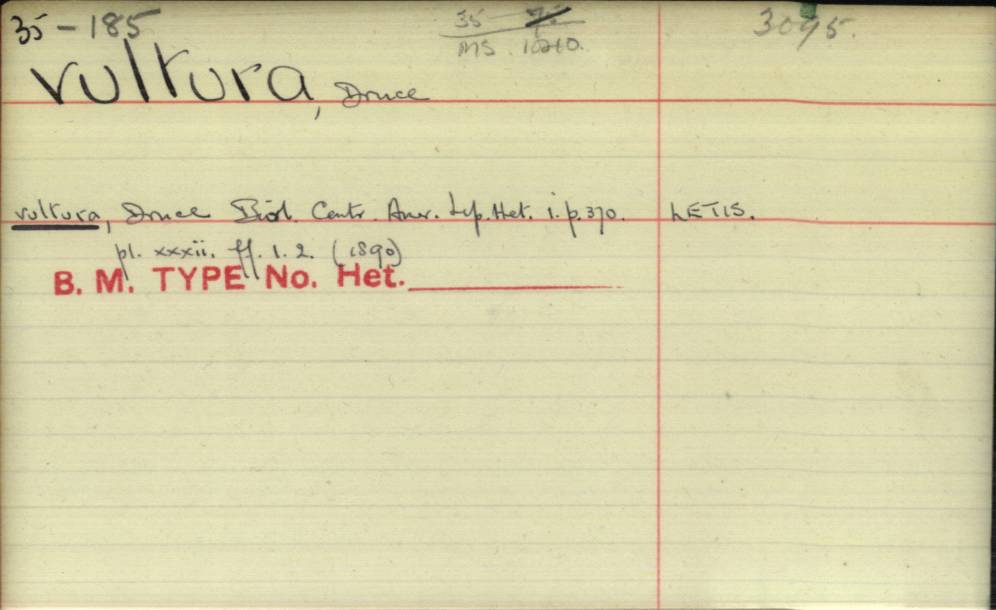 35-185
35
MS. 1040.
3095.
vultura, Druce
vultura, Druce Biol. Centr. Amer. Lep. Het. i. p. 370. LETIS.
pl. xxxii. ff. 1. 2. (1890)
B. M. TYPE No. Het.